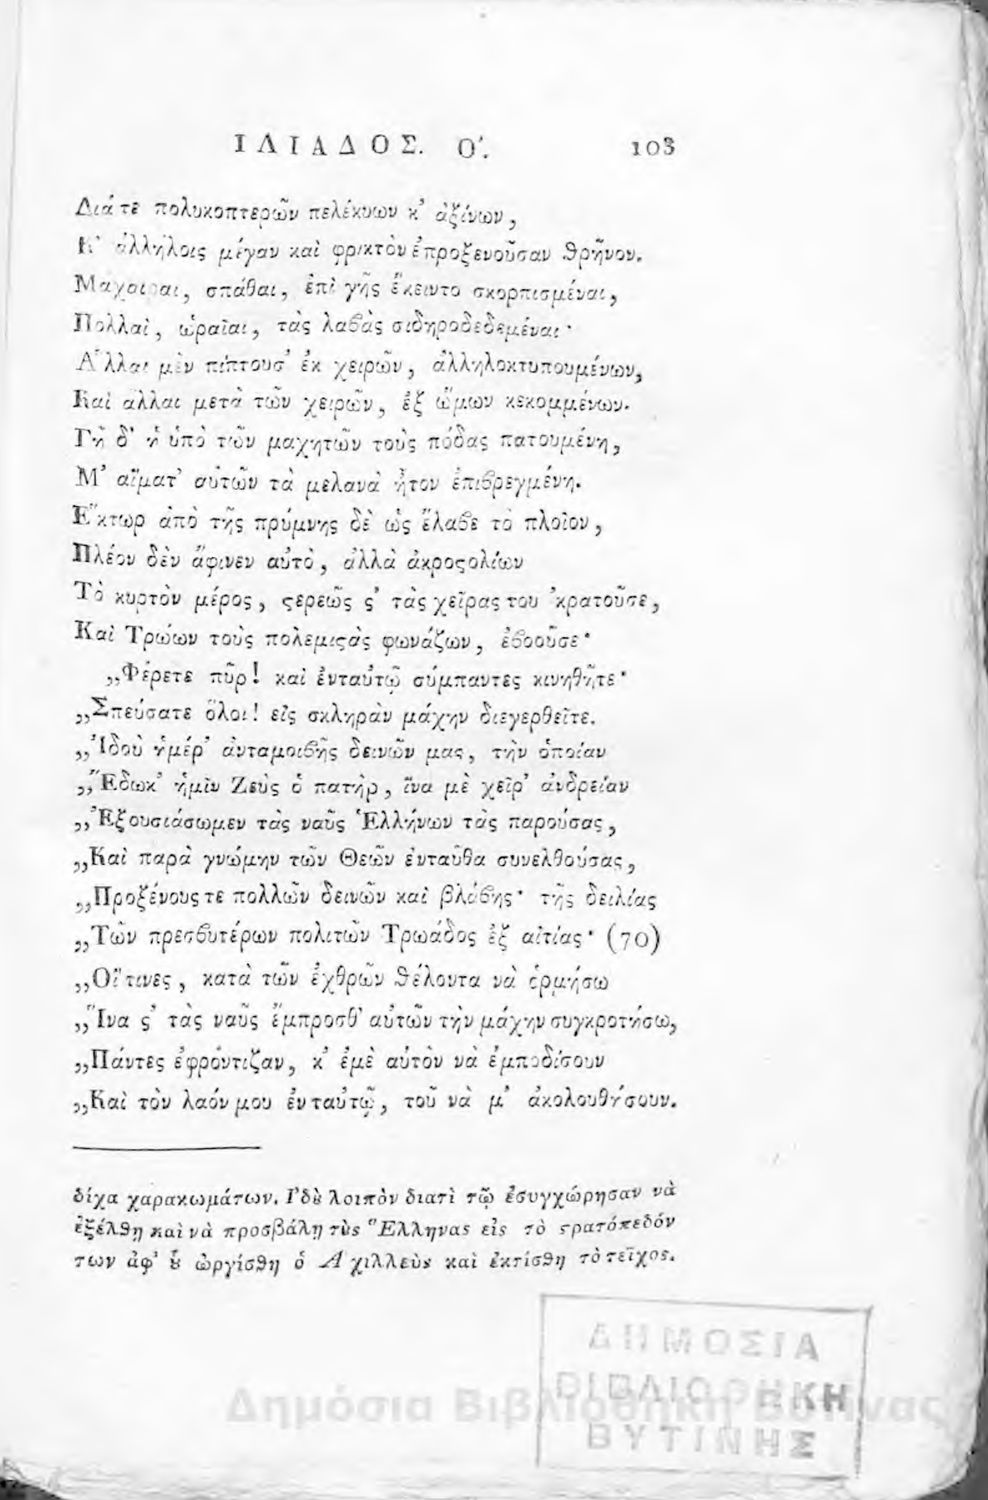 ΙΛΙΑΔΟΣ. Ο΄. 103
Διά τε πολυκοπτερῶν πελέκυων κ' ἀξίνων,
Κ' ἀλλήλοις μέγαν καὶ φρικτὸν ἐπροξενοῦσαν ϑρῆνον.
Μαχαιραι, σπάθαι, ἐπὶ γῆς ἔκειντο σκορπισμέναι,
Πολλαὶ, ὡραῖαι, τὰς λαβὰς σιδηροδεδεμέναι·
Ἄλλαι μὲν πίπτουσ' ἐκ χειρῶν, ἀλληλοκτυπουμένων,
Καὶ ἄλλαι μετὰ τῶν χειρῶν, ἐξ ὤμων κεκομμένων.
Γῆ δ' ἡ ὑπὸ τῶν μαχητῶν τοὺς πόδας πατουμένη,
Μ' αἵματ' αὐτῶν τὰ μελανὰ ἦτον ἐπιβρεγμένη.
Ἕκτωρ ἀπὸ τῆς πρύμνης δὲ ὡς ἔλαβε τὸ πλοῖον,
Πλέον δὲν ἄφινεν αὐτὸ, ἀλλὰ ἀκροϛολίων
Τὸ κυρτὸν μέρος, ϛερεῶς ϛ' τὰς χεῖρας του 'κρατοῦσε,
Καὶ Τρώων τοὺς πολεμιϛὰς φωνάζων, ἐβοοῦσε·
„Φέρετε πῦρ! καὶ ἐνταὐτῷ σύμπαντες κινηθῆτε·
„Σπεύσατε ὅλοι! εἰς σκληρὰν μάχην διεγερθεῖτε.
„Ἰδοὺ ἡμέρ' ἀνταμοιβῆς δεινῶν μας, τὴν ὁποίαν
„Ἔδωκ' ἡμῖν Ζεὺς ὁ πατὴρ, ἵνα μὲ χεῖρ' ἀνδρείαν
„Ἐξουσιάσωμεν τὰς ναῦς Ἑλλήνων τὰς παρούσας,
„Καὶ παρὰ γνώμην τῶν Θεῶν ἐνταῦθα συνελθούσας,
„Προξένους τε πολλῶν δεινῶν καὶ βλάβης· τῆς δειλίας
„Τῶν πρεσβυτέρων πολιτῶν Τρωάδος ἐξ αἰτίας· (70)
„Οἵ τινες, κατὰ τῶν ἐχθρῶν ϑέλοντα νὰ ὁρμήσω
„Ἵνα ϛ' τὰς ναῦς ἔμπροσθ' αὐτῶν τὴν μάχην συγκροτήσω,
„Πάντες ἐφρόντιζαν, κ' ἐμὲ αὐτὸν νὰ ἐμποδίσουν
„Καὶ τὸν λαόν μου ἐνταὐτῷ, τοῦ νὰ μ' ἀκολουθήσουν.
δίχα χαρακωμάτων. Ἰδȣ̀ λοιπὸν διατὶ τῷ ἐσυγχώρησαν νὰ
ἐξέλϑῃ καὶ νὰ προσβάλῃ τȣ̀ς Ἕλληνας εἰς τὸ ϛρατόπεδόν
των ἀφ' ȣ̔͂ ὠργίσϑη ὁ Ἀχιλλεὺς καὶ ἐκτίσϑη τὸ τεῖχος.
ΔΗΜΟΣΙΑ
ΒΙΒΛΙΟΘΗΚΗ
ΒΥΤΙΝΗΣ
Δημόσια Βιβλιοθήκη Βυτίνας